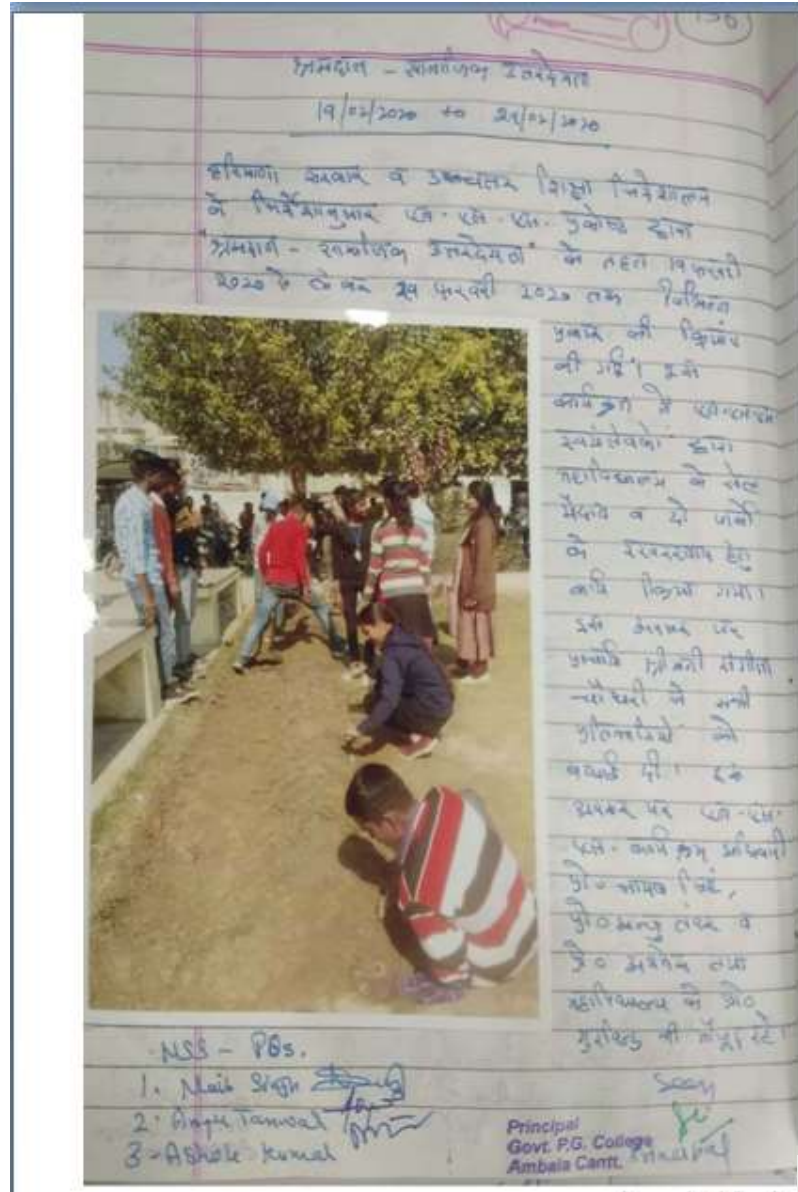 श्रमदान - सामाजिक उत्तरदेयता
19/02/2020 to 29/02/2020
हरियाणा सरकार व उच्चतर शिक्षा निदेशालय
के निर्देशानुसार एन.एस.एस. प्रकोष्ठ द्वारा
"श्रमदान - सामाजिक उत्तरदेयता" के तहत 19 फरवरी
2020 से लेकर 29 फरवरी 2020 तक विभिन्न
प्रकार की क्रियाएं
की गई। इस
कार्यक्रम में एन.एस.एस.
स्वयंसेवकों द्वारा
महाविद्यालय के खेल
मैदान व दो पार्कों
के रखरखाव हेतु
कार्य किया गया।
इस अवसर पर
प्राचार्या श्रीमती संगीता
चौधरी ने सभी
प्रतिभागियों को
बधाई दी। इस
अवसर पर एन.एस.
एस. कार्यक्रम अधिकारी
प्रो० सिंह,
प्रो० अन्जु तंवर व
प्रो० अशोक तथा
महाविद्यालय के प्रो०
भी मौजूद रहे।
NSS - POs.
1. Maib Singh
2. Anju Tanwal
3 - Ashok Kumal
Seen
Principal
Principal
Govt. P.G. College
Ambala Cantt.